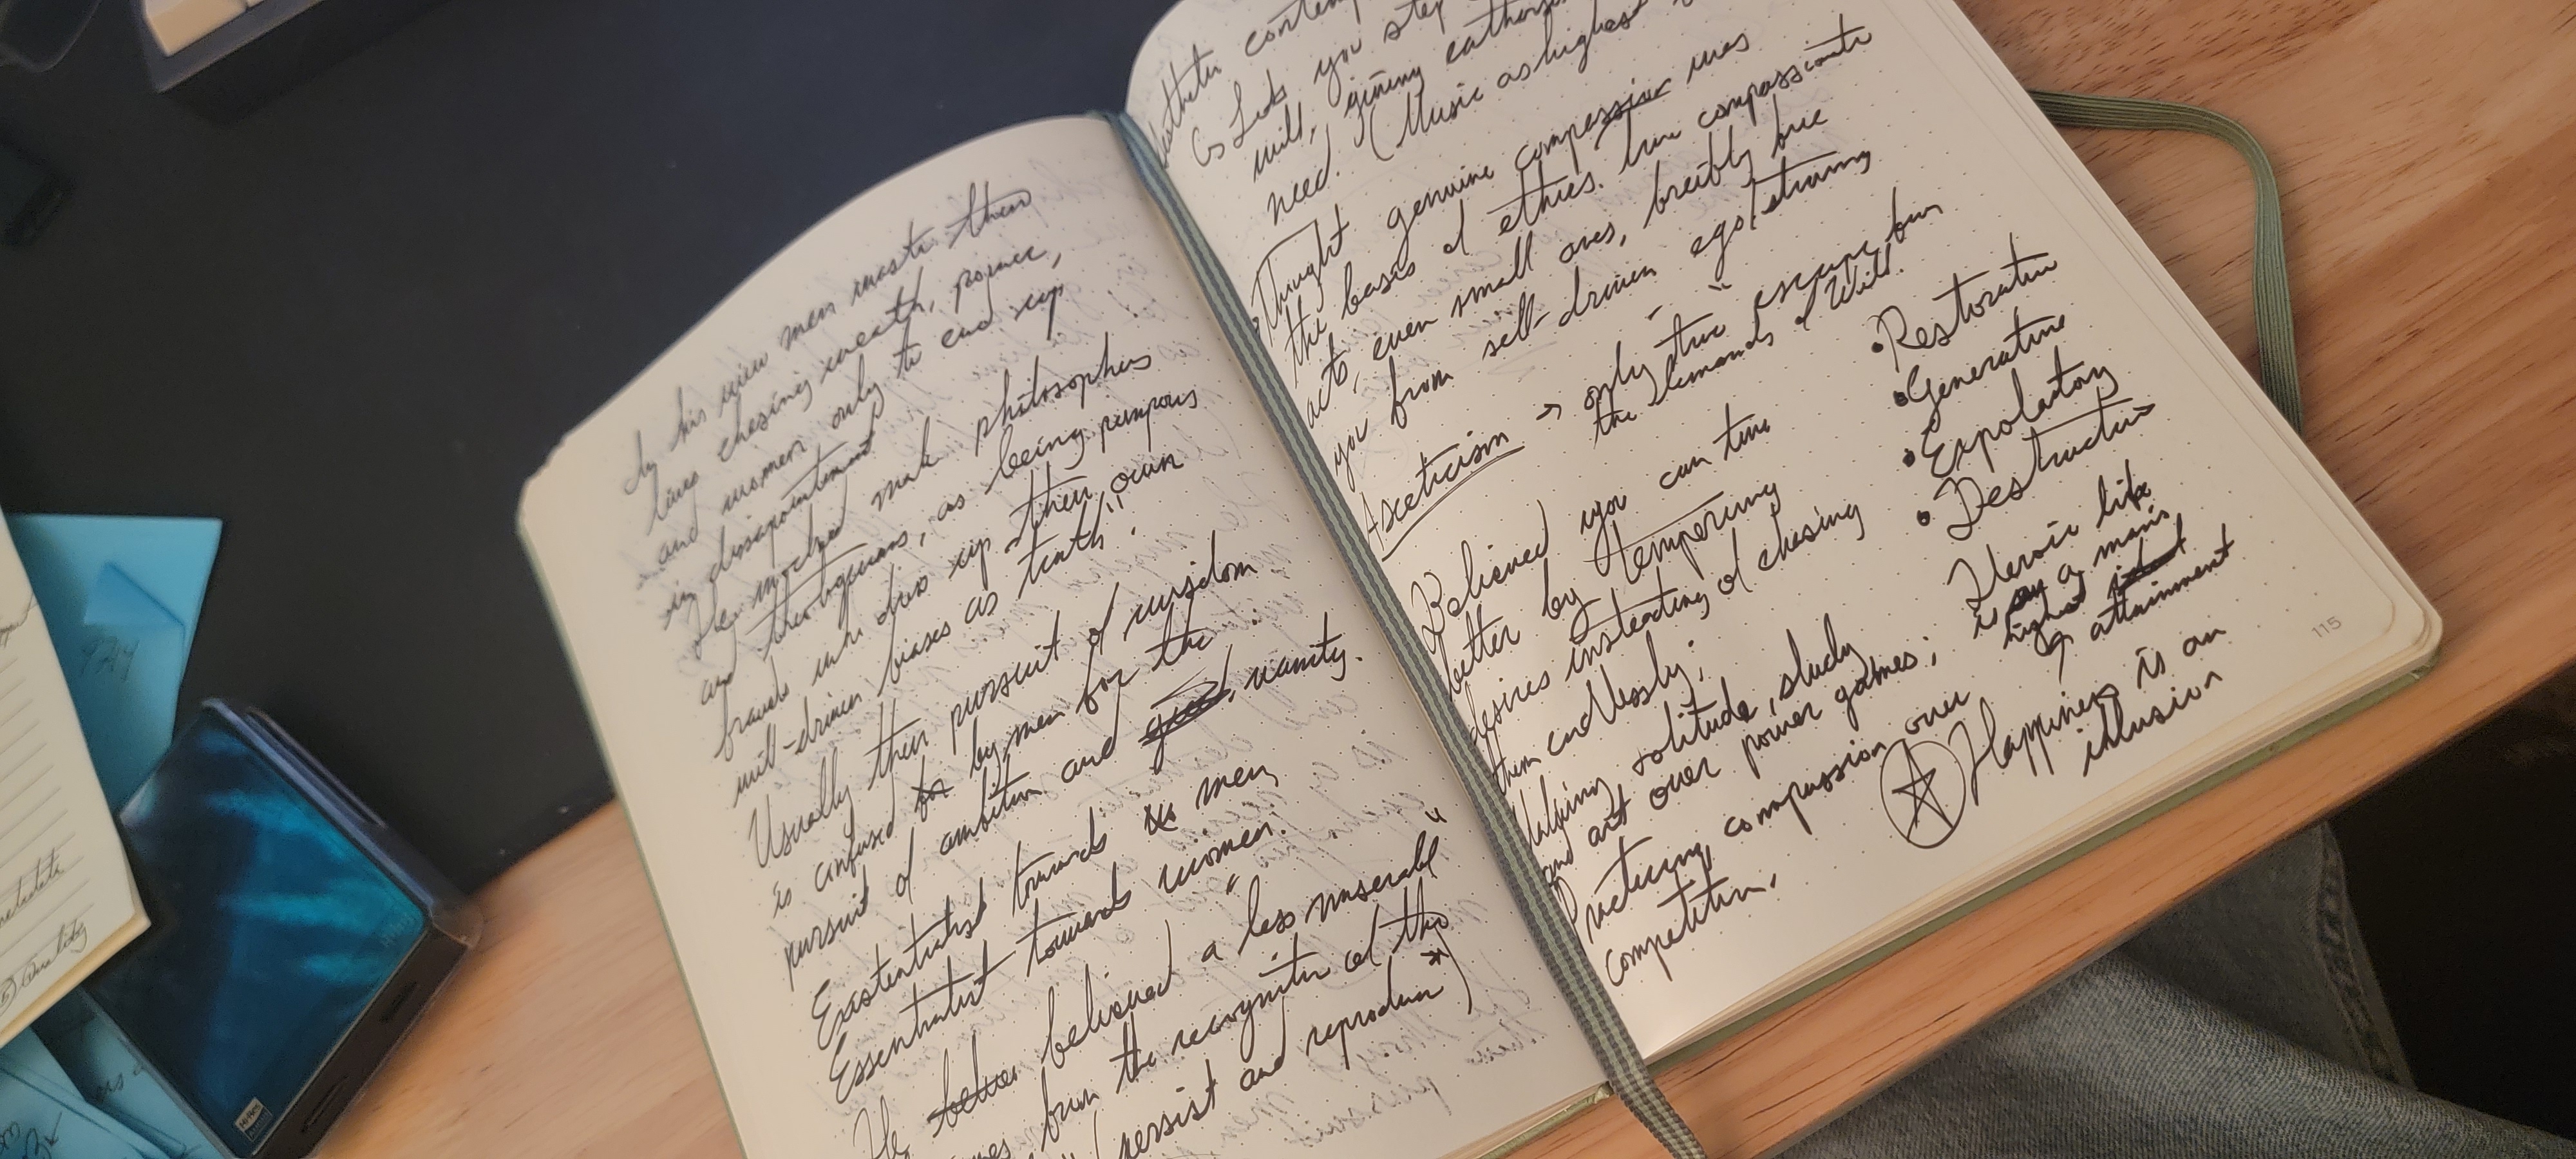 In his view men waste their
lives chasing wealth, power,
and women only to end up
in disapointment
He mocked male philosophers
and theologians, as being pompous
frauds who dress up their own
will-driven biases as truth".
Usually their pursuit of wisdom
is confused for by men for the
pursuit of ambition and vanity.
Existentialist towards men,
Essentialist towards women.
He believed a "less miserable"
from the recognition of this
persist and reproduce )
Aesthetic
As Lucks you step
will, giving
need. (Music as highest
Thought genuine compassion was
the basis of ethics. True compassionate
acts, even small ones, breifly free
you from self-driven ego/striving
Asceticism → only true escape from
the demands of Will.
Believed you can live
better by tempering
desires insteading of chasing
them endlessly;
Valuing solitude, study
and art over power games;
Practicing compassion over
competition.
• Restorative
• Generative
• Exploratory
• Destructive
Heroic life
is a man's
highest
attainment
Happiness is an
illusion
115
Hi-Res
AUDIO
Quality